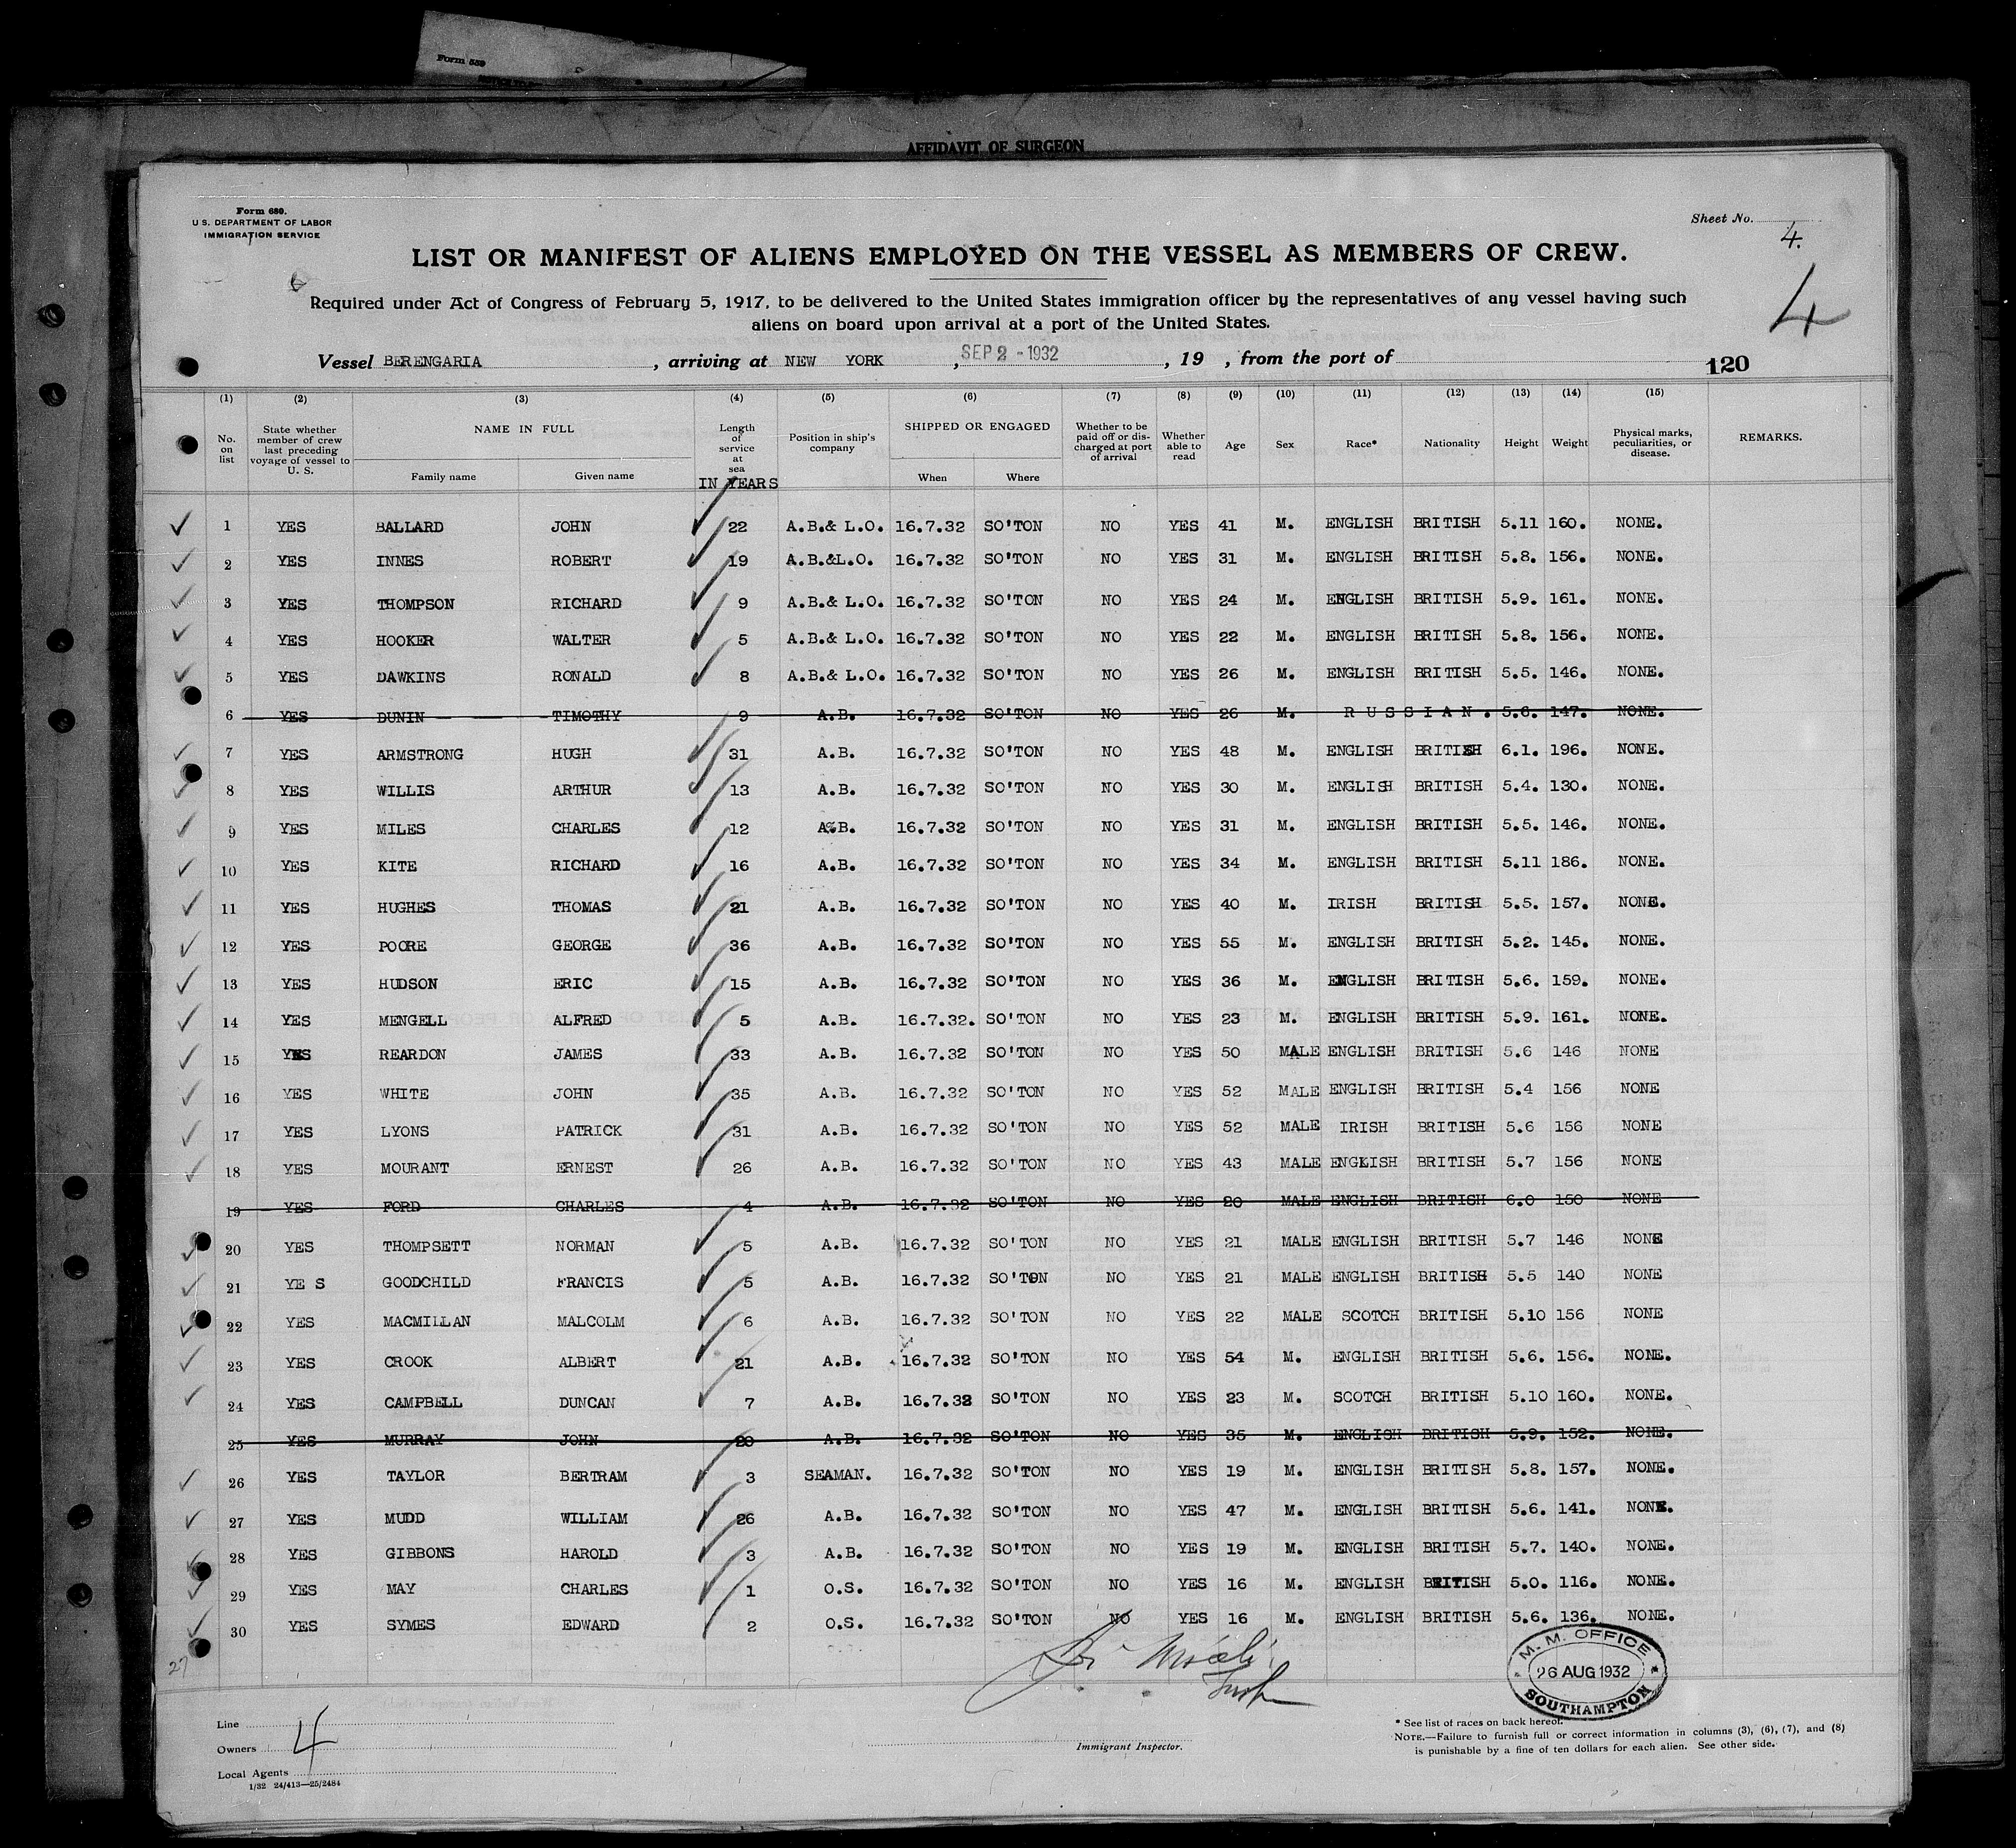 Form 559
AFFIDAVIT OF SURGEON
Form 680.
U. S. DEPARTMENT OF LABOR
IMMIGRATION SERVICE
Sheet No.
4.
4
LIST OR MANIFEST OF ALIENS EMPLOYED ON THE VESSEL AS MEMBERS OF CREW.
Required under Act of Congress of February 5, 1917, to be delivered to the United States immigration officer by the representatives of any vessel having such
aliens on board upon arrival at a port of the United States.
Vessel BERENGARIA, arriving at NEW YORK, SEP 2 - 1932, 19 , from the port of
120
(1) (2) (3) (4) (5) (6) (7) (8) (9) (10) (11) (12) (13) (14) (15)
No. on list State whether member of crew last preceding voyage of vessel to U. S. NAME IN FULL Family name Given name Length of service at sea IN YEARS Position in ship's company SHIPPED OR ENGAGED When Where Whether to be paid off or discharged at port of arrival Whether able to read Age Sex Race* Nationality Height Weight Physical marks, peculiarities, or disease. REMARKS.
1 YES BALLARD JOHN 22 A.B.& L.O. 16.7.32 SO'TON NO YES 41 M. ENGLISH BRITISH 5.11 160. NONE.
2 YES INNES ROBERT 19 A.B.&L.O. 16.7.32 SO'TON NO YES 31 M. ENGLISH BRITISH 5.8. 156. NONE.
3 YES THOMPSON RICHARD 9 A.B.& L.O. 16.7.32 SO'TON NO YES 24 M. ENGLISH BRITISH 5.9. 161. NONE.
4 YES HOOKER WALTER 5 A.B.& L.O. 16.7.32 SO'TON NO YES 22 M. ENGLISH BRITISH 5.8. 156. NONE.
5 YES DAWKINS RONALD 8 A.B.& L.O. 16.7.32 SO'TON NO YES 26 M. ENGLISH BRITISH 5.5. 146. NONE.
6 YES DUNIN TIMOTHY 9 A.B. 16.7.32 SO'TON NO YES 26 M. RUSSIAN. 5.6. 147. NONE.
7 YES ARMSTRONG HUGH 31 A.B. 16.7.32 SO'TON NO YES 48 M. ENGLISH BRITISH 6.1. 196. NONE.
8 YES WILLIS ARTHUR 13 A.B. 16.7.32 SO'TON NO YES 30 M. ENGLISH BRITISH 5.4. 130. NONE.
9 YES MILES CHARLES 12 A.B. 16.7.32 SO'TON NO YES 31 M. ENGLISH BRITISH 5.5. 146. NONE.
10 YES KITE RICHARD 16 A.B. 16.7.32 SO'TON NO YES 34 M. ENGLISH BRITISH 5.11 186. NONE.
11 YES HUGHES THOMAS 21 A.B. 16.7.32 SO'TON NO YES 40 M. IRISH BRITISH 5.5. 157. NONE.
12 YES POORE GEORGE 36 A.B. 16.7.32 SO'TON NO YES 55 M. ENGLISH BRITISH 5.2. 145. NONE.
13 YES HUDSON ERIC 15 A.B. 16.7.32 SO'TON NO YES 36 M. ENGLISH BRITISH 5.6. 159. NONE.
14 YES MENGELL ALFRED 5 A.B. 16.7.32. SO'TON NO YES 23 M. ENGLISH BRITISH 5.9. 161. NONE.
15 YES REARDON JAMES 33 A.B. 16.7.32 SO'TON NO YES 50 MALE ENGLISH BRITISH 5.6 146 NONE
16 YES WHITE JOHN 35 A.B. 16.7.32 SO'TON NO YES 52 MALE ENGLISH BRITISH 5.4 156 NONE
17 YES LYONS PATRICK 31 A.B. 16.7.32 SO'TON NO YES 52 MALE IRISH BRITISH 5.6 156 NONE
18 YES MOURANT ERNEST 26 A.B. 16.7.32 SO'TON NO YES 43 MALE ENGLISH BRITISH 5.7 156 NONE
19 YES FORD CHARLES 4 A.B. 16.7.32 SO'TON NO YES 20 MALE ENGLISH BRITISH 6.0 150 NONE
20 YES THOMPSETT NORMAN 5 A.B. 16.7.32 SO'TON NO YES 21 MALE ENGLISH BRITISH 5.7 146 NONE
21 YE S GOODCHILD FRANCIS 5 A.B. 16.7.32 SO'TON NO YES 21 MALE ENGLISH BRITISH 5.5 140 NONE
22 YES MACMILLAN MALCOLM 6 A.B. 16.7.32 SO'TON NO YES 22 MALE SCOTCH BRITISH 5.10 156 NONE
23 YES CROOK ALBERT 21 A.B. 16.7.32 SO'TON NO YES 54 M. ENGLISH BRITISH 5.6. 156. NONE.
24 YES CAMPBELL DUNCAN 7 A.B. 16.7.32 SO'TON NO YES 23 M. SCOTCH BRITISH 5.10 160. NONE.
25 YES MURRAY JOHN 20 A.B. 16.7.32 SO'TON NO YES 35 M. ENGLISH BRITISH 5.9. 152. NONE.
26 YES TAYLOR BERTRAM 3 SEAMAN. 16.7.32 SO'TON NO YES 19 M. ENGLISH BRITISH 5.8. 157. NONE.
27 YES MUDD WILLIAM 26 A.B. 16.7.32 SO'TON NO YES 47 M. ENGLISH BRITISH 5.6. 141. NONE.
28 YES GIBBONS HAROLD 3 A.B. 16.7.32 SO'TON NO YES 19 M. ENGLISH BRITISH 5.7. 140. NONE.
29 YES MAY CHARLES 1 O.S. 16.7.32 SO'TON NO YES 16 M. ENGLISH BRITISH 5.0. 116. NONE.
30 YES SYMES EDWARD 2 O.S. 16.7.32 SO'TON NO YES 16 M. ENGLISH BRITISH 5.6. 136. NONE.
27
M. M. OFFICE
26 AUG 1932
SOUTHAMPTON
Line
Owners 4
Local Agents
1/32 24/413—25/2484
Immigrant Inspector.
* See list of races on back hereof.
NOTE.—Failure to furnish full or correct information in columns (3), (6), (7), and (8)
is punishable by a fine of ten dollars for each alien. See other side.